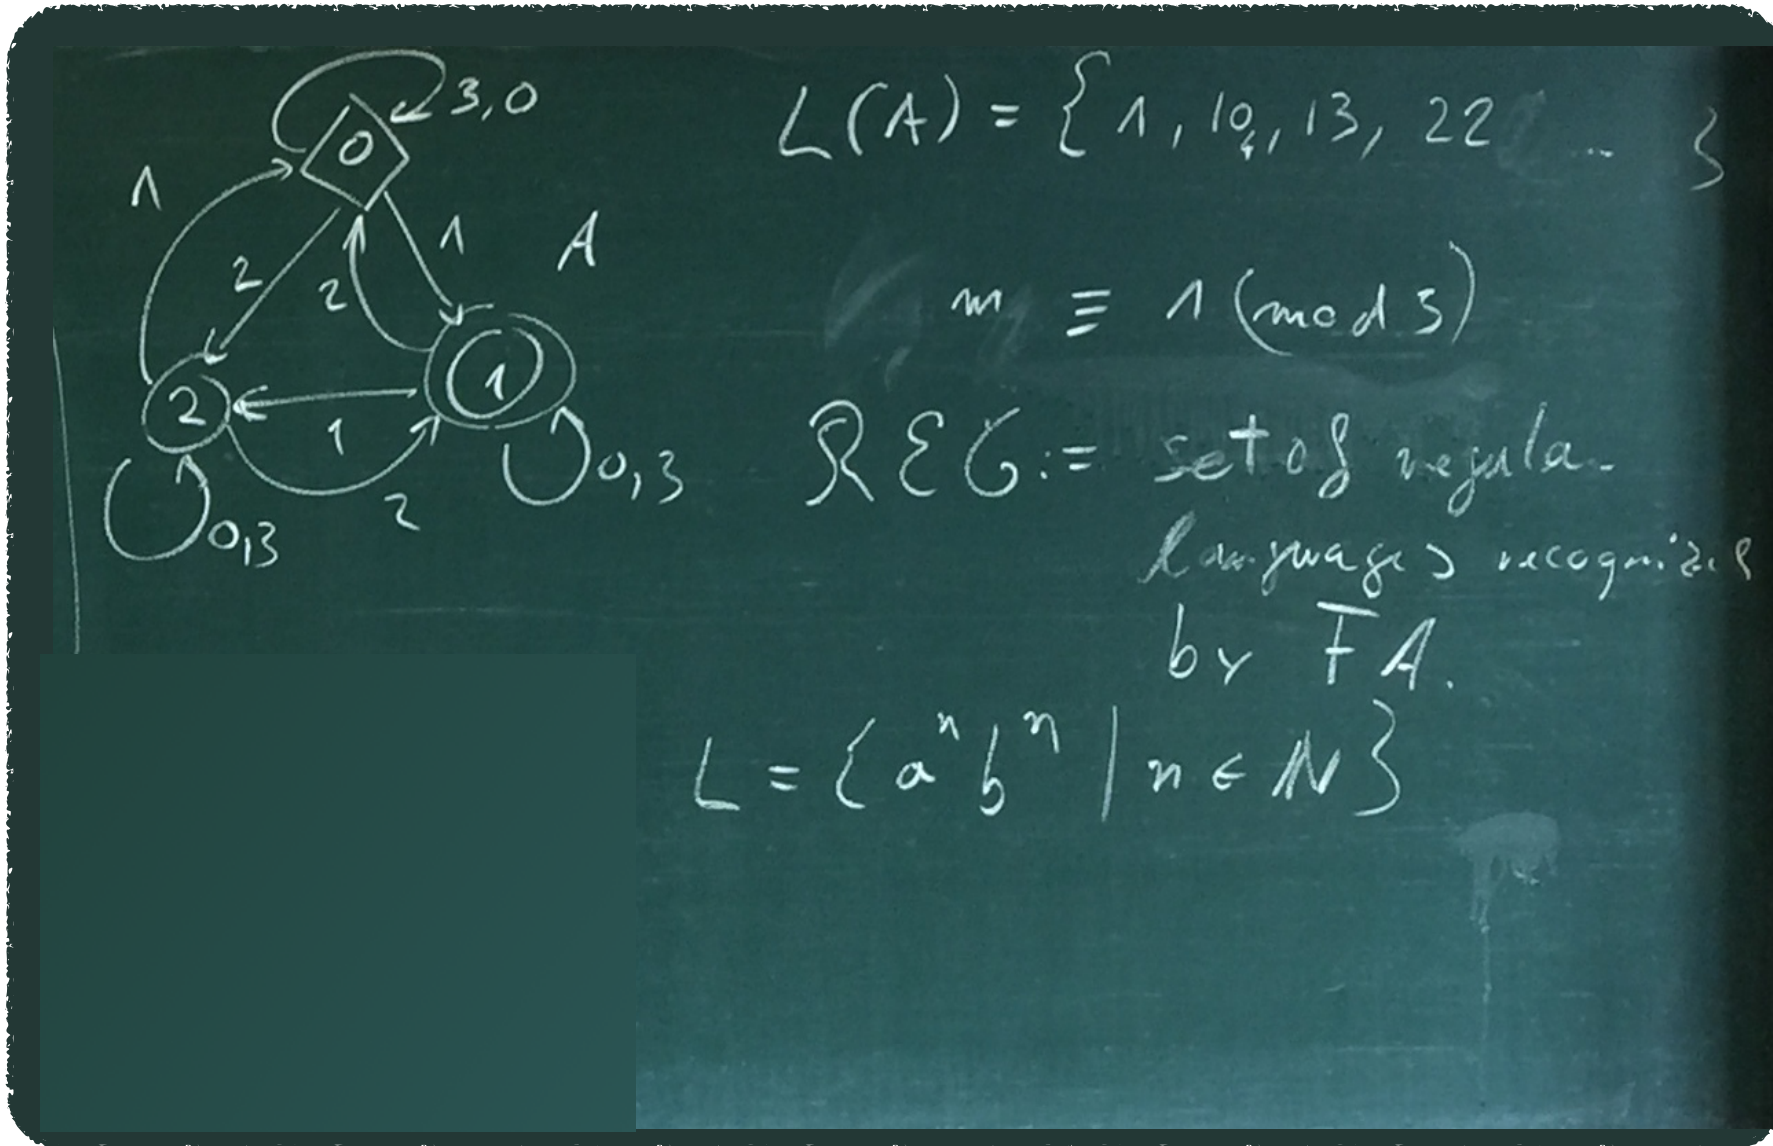 3,0
0
1
2
2
1
A
2
1
1
2
0,3
0,3
L(A) = { 1, 10, 13, 22 ... }
m ≡ 1 (mod 3)
REG := set of regula
languages recognized
by FA.
L = { aⁿ bⁿ | n ∈ ℕ }